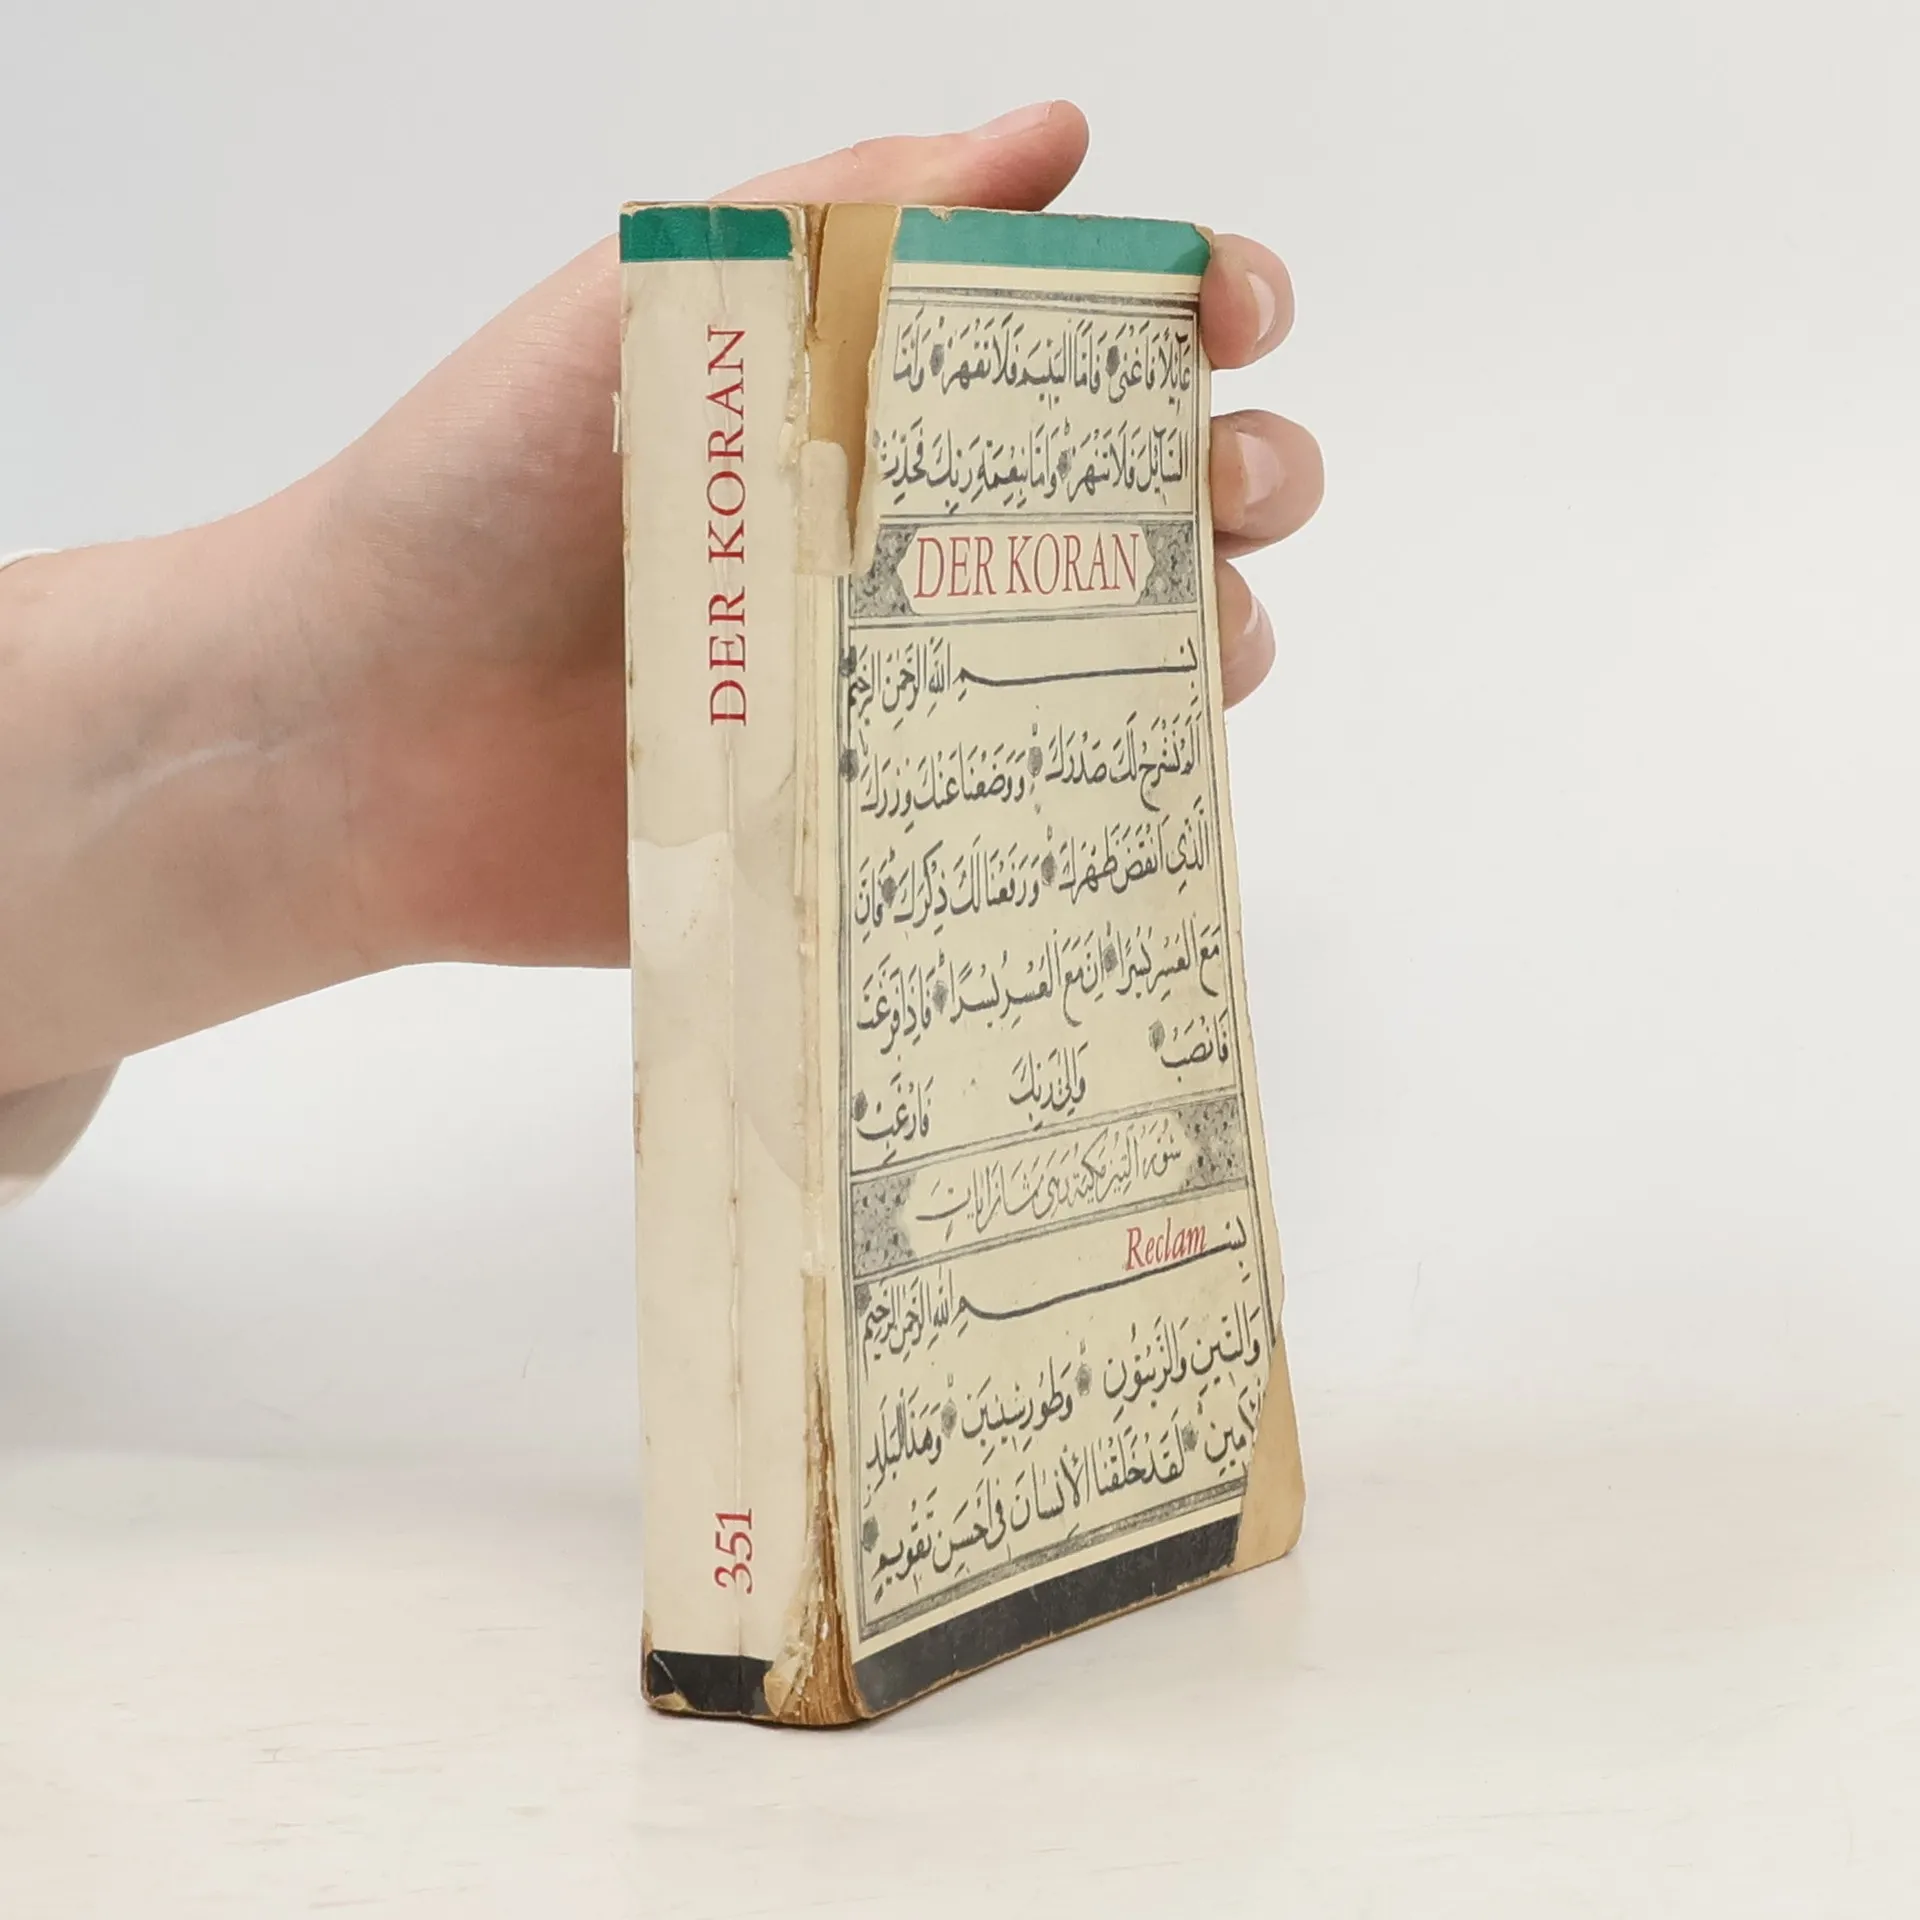 DER KORAN
351
عَآئِلًا فَاَغْنٰى فَاَمَّا الْيَتِيمَ فَلَا تَقْهَرْ وَاَمَّا
السَّآئِلَ فَلَا تَنْهَرْ وَاَمَّا بِنِعْمَةِ رَبِّكَ فَحَدِّثْ
DER KORAN
بِسْمِ اللّٰهِ الرَّحْمٰنِ الرَّحِيمِ
اَلَمْ نَشْرَحْ لَكَ صَدْرَكَ وَوَضَعْنَا عَنْكَ وِزْرَكَ
الَّذِي اَنْقَضَ ظَهْرَكَ وَرَفَعْنَا لَكَ ذِكْرَكَ فَاِنَّ
مَعَ الْعُسْرِ يُسْرًا اِنَّ مَعَ الْعُسْرِ يُسْرًا فَاِذَا فَرَغْتَ
فَانْصَبْ وَاِلٰى رَبِّكَ فَارْغَبْ
سُورَةُ التِّينِ مَكِّيَّةٌ وَهِيَ ثَمَانُ اٰيَاتٍ
Reclam
بِسْمِ اللّٰهِ الرَّحْمٰنِ الرَّحِيمِ
وَالتِّينِ وَالزَّيْتُونِ وَطُورِ سِينِينَ وَهٰذَا الْبَلَدِ
الْاَمِينِ لَقَدْ خَلَقْنَا الْاِنْسَانَ فِي اَحْسَنِ تَقْوِيمٍ